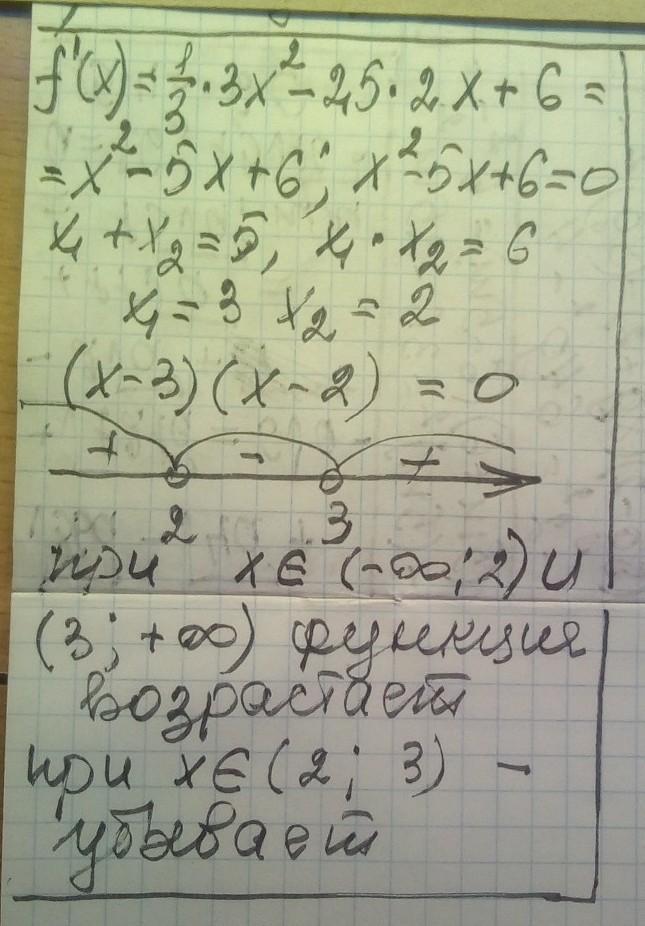 f'(x) = 1/3 · 3x² - 2,5 · 2x + 6 =
= x² - 5x + 6; x² - 5x + 6 = 0
x₁ + x₂ = 5, x₁ · x₂ = 6
x₁ = 3 x₂ = 2
(x - 3)(x - 2) = 0
+ - +
2 3
при x ∈ (-∞; 2) и
(3; +∞) функция
возрастает
при x ∈ (2; 3) -
убывает